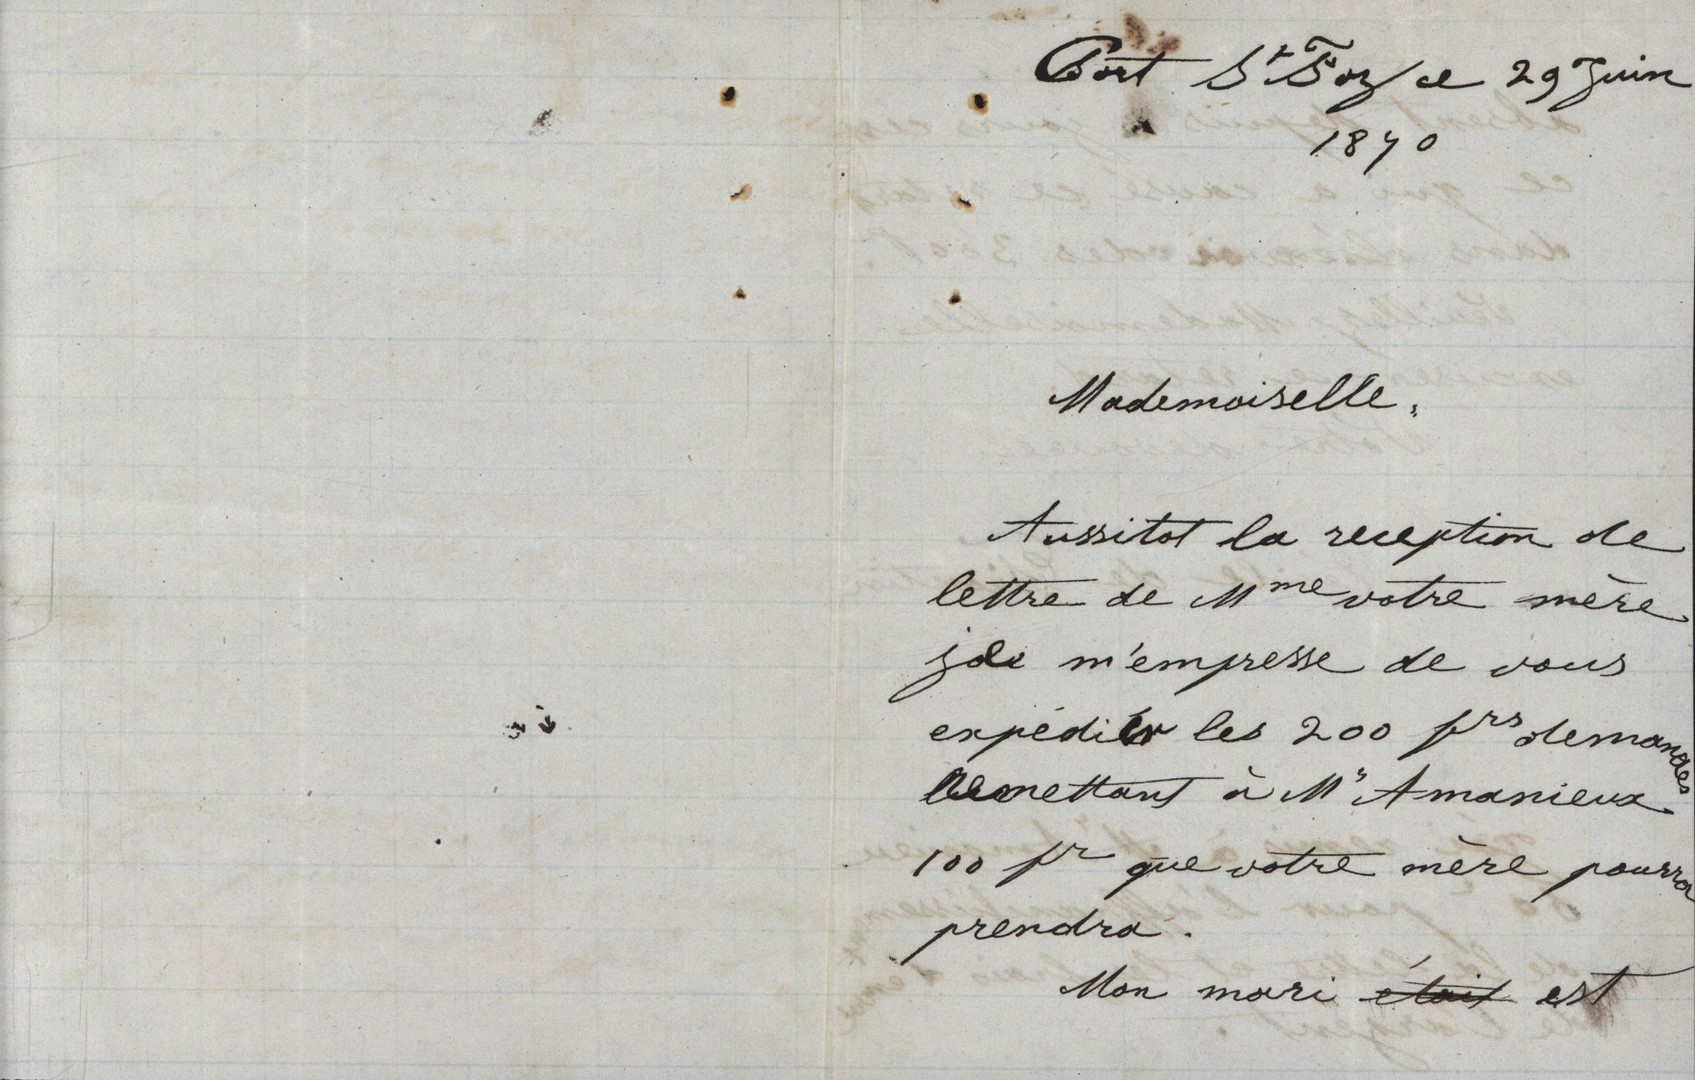 Port Ste Foy le 29 Juin
1870
Mademoiselle,
Aussitot la reception de
lettre de Mme votre mère
je m'empresse de vous
expédier les 200 frs demandés
Remettant à Mr Amanieux
100 fr que votre mère pourra
prendra.
Mon mari était est